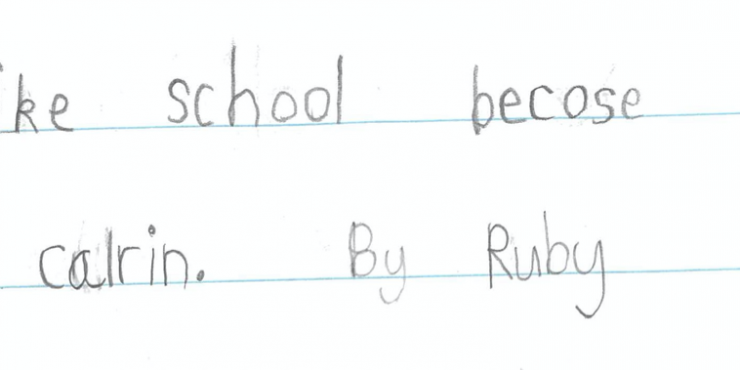 ke school becose
calrin. By Ruby